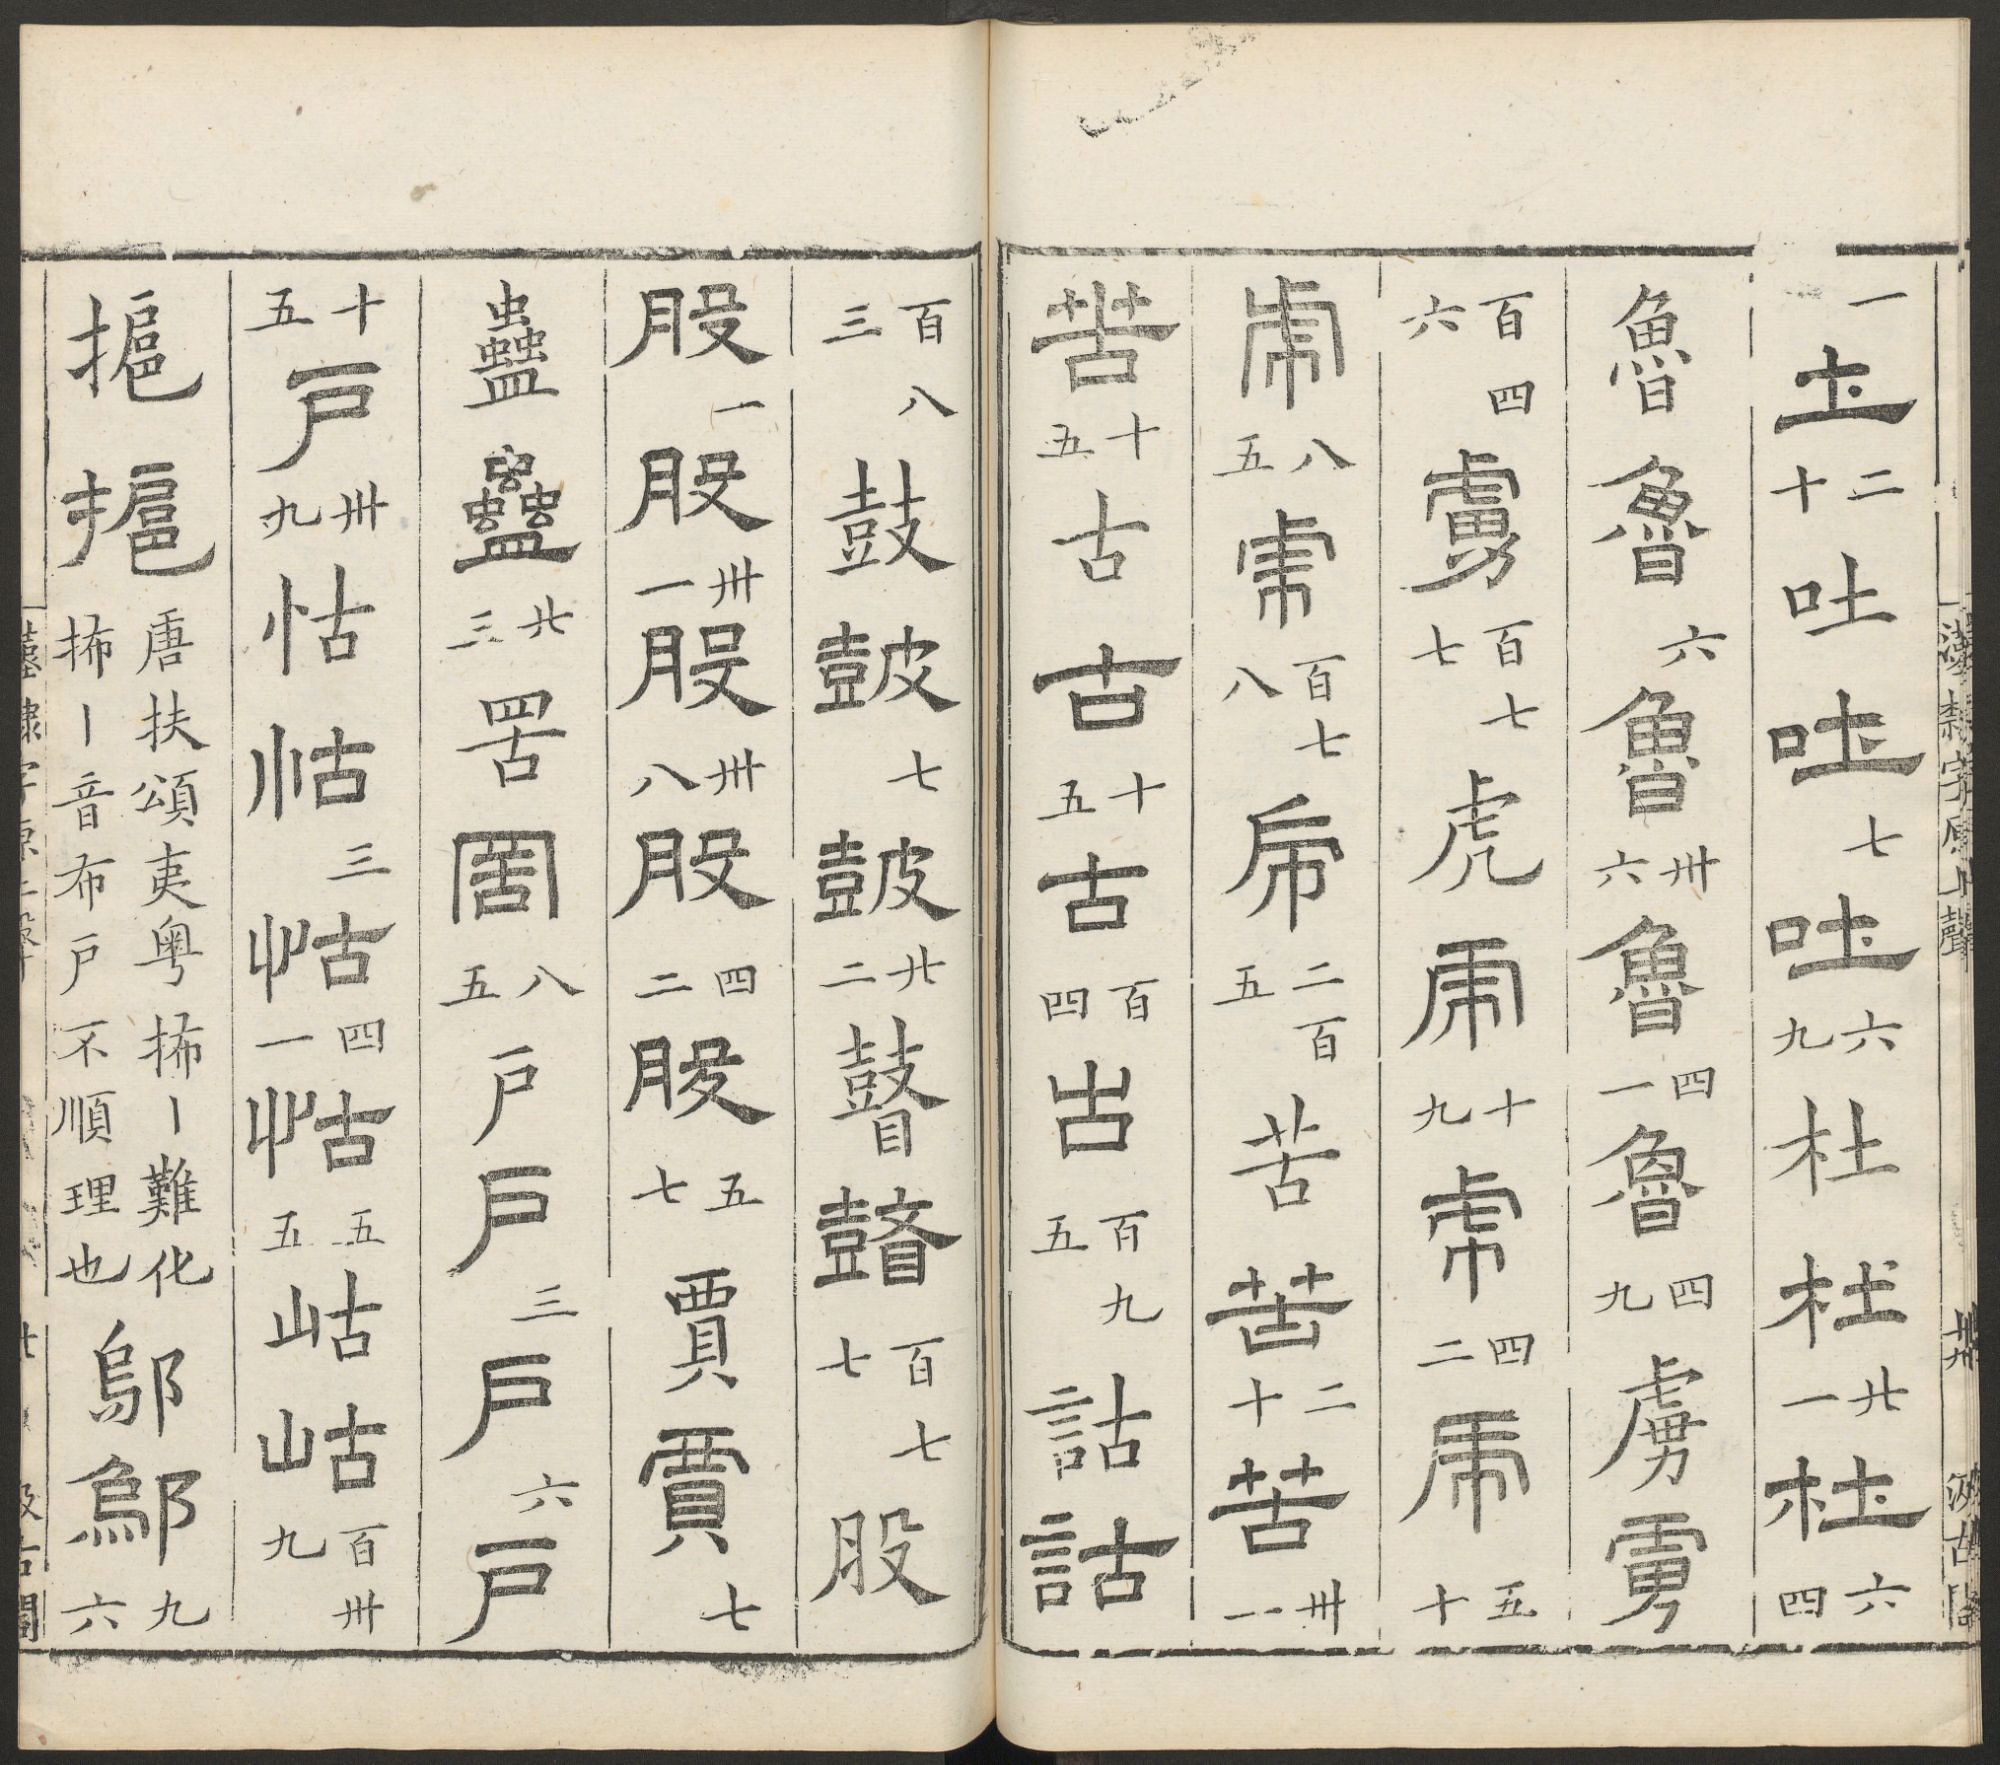 一土二十吐吐七吐六九杜杜廿一杜六四
魯魯六魯卅六魯四一魯四九虜虜
百四六虜百七七虎虎十九虎四二虎五十
虎八五虎百七八虎二百五苦苦二十苦卅一
苦十五古古十五古百四古百九五詁詁
百八三鼓鼓七鼓廿二瞽瞽百七七股
股一股卅一股卅八股四二股五七賈賈七
蠱蠱廿三罟罟八五戶戶三戶六戶
十五戶卅九怙怙三怙四一怙五五岵岵百卅九
摢摢唐扶頌夷粵抪丨難化抪丨音布戶不順理也鄔鄔九六
漢隸字原上聲 卅 汲古閣